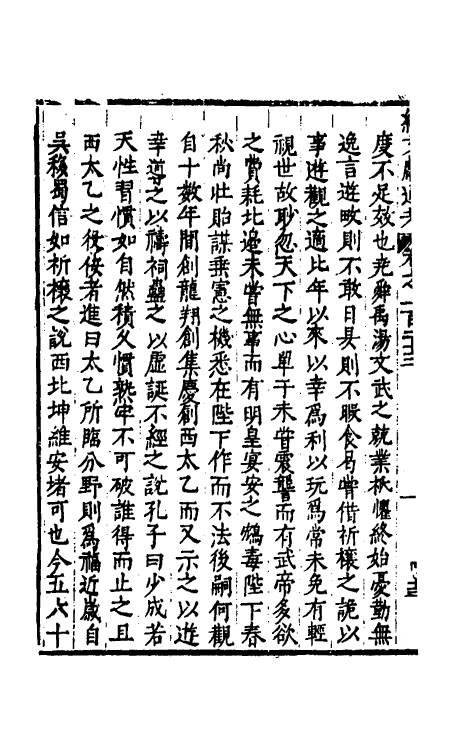 度不足效也堯舜禹湯文武之兢業祗懼終始憂勤無
逸言遊畋則不敢日昃則不暇食曷嘗借祈禳之說以
事遊觀之適比年以來以幸爲利以玩爲常未免有輕
視世故眇忽天下之心單于未嘗震讋而有武帝多欲
之費耗北邊未嘗無事而有明皇宴安之鴆毒陛下春
秋尚壯貽謀垂憲之機悉在陛下作而不法後嗣何觀
自十數年間創龍翔創集慶創西太乙而又示之以遊
幸導之以禱祠蠱之以虛誕不經之說孔子曰少成若
天性習慣如自然積久慣熟牢不可破誰得而止之且
西太乙之役佞者進曰太乙所臨分野則爲福近歲自
吳移蜀信如祈禳之說西北坤維安堵可也今五六十